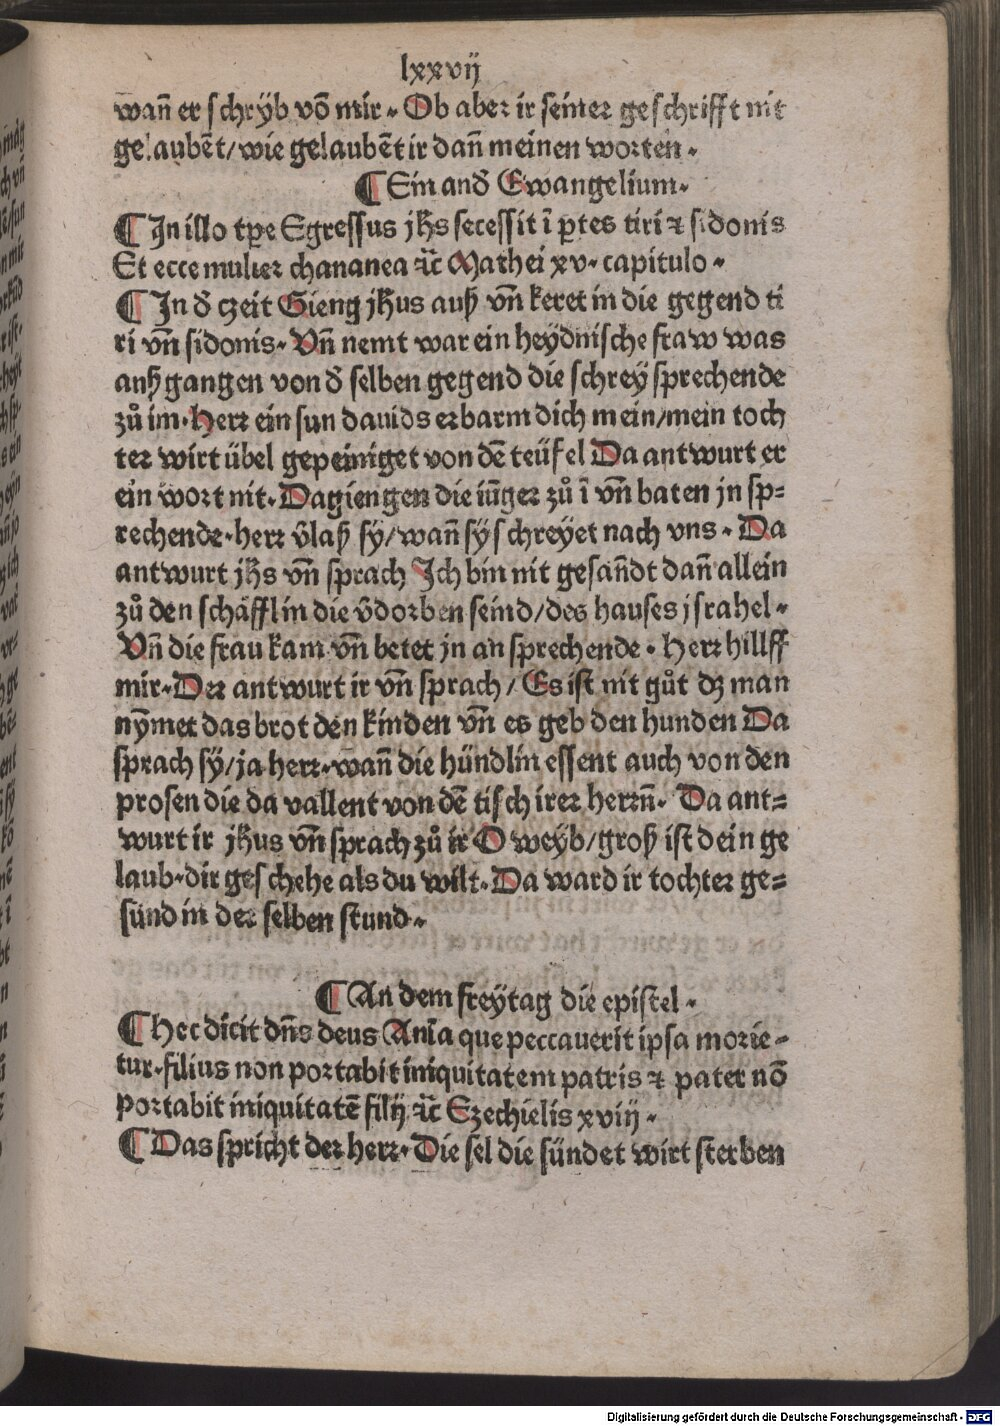 lxxvij
wañ er schryb võ mir. Ob aber ir seiner geschrifft nit
gelaubẽt/wie gelaubẽt ir dañ meinen worten.
¶ Ein and̾ Ewangelium.
¶ In illo tp̄e Egressus jh̄s secessit ī ꝑtes tiri ⁊ sidonis
Et ecce mulier chananea ⁊c̄ Mathei xv. capitulo.
¶ In d̾ czeit Gieng jh̄us auß vñ keret in die gegend ti
ri vñ sidonis. Vñ nemt war ein heydnische fraw was
außgangen von d̾ selben gegend die schrey sprechende
zů im. Herr ein sun dauids erbarm dich mein/mein toch
ter wirt übel gepeiniget von dẽ teüfel Da antwurt er
ein wort nit. Da giengen die iūger zů ī vñ baten jn sp⸗
rechende. herr v̄laß sy/wañ sy schreyet nach vns. Da
antwurt jh̄s vñ sprach Ich bin nit gesañdt dañ allein
zů den schäfflin die v̄dorben seind/des hauses jsrahel.
Vñ die frau kam vñ betet jn an sprechende. Herr hillff
mir. Der antwurt ir vñ sprach/Es ist nit gůt dz man
nȳmet das brot den kinden vñ es geb den hunden Da
sprach sy/ja herr. wañ die hündlin essent auch von den
prosen die da vallent von dẽ tisch irer herrñ. Da ant⸗
wurt ir jh̄us vñ sprach zů ir O weyb/groß ist dein ge
laub. dir geschehe als du wilt. Da ward ir tochter ge⸗
sund in der selben stund.
¶ An dem freytag die epistel.
¶ Hec dicit dñs deus Anīa que peccauerit ipsa morie⸗
tur. filius non portabit iniquitatem patris ⁊ pater nō
portabit iniquitatē filij ⁊c̄ Ezechielis xviij.
¶ Das spricht der herr. Die sel die sündet wirt sterben
Digitalisierung gefördert durch die Deutsche Forschungsgemeinschaft - DFG